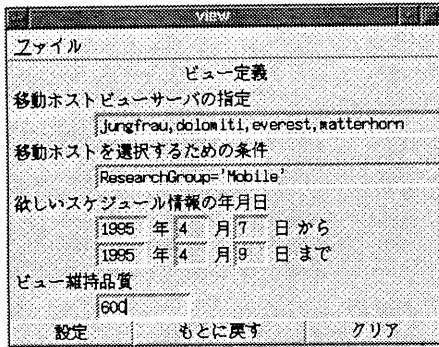 view
ファイル
ビュー定義
移動ホストビューサーバの指定
jungfrau,dolomiti,everest,matterhorn
移動ホストを選択するための条件
ResearchGroup='Mobile'
欲しいスケジュール情報の年月日
1995 年 4 月 7 日 から
1995 年 4 月 9 日 まで
ビュー維持品質
600
設定 もとに戻す クリア